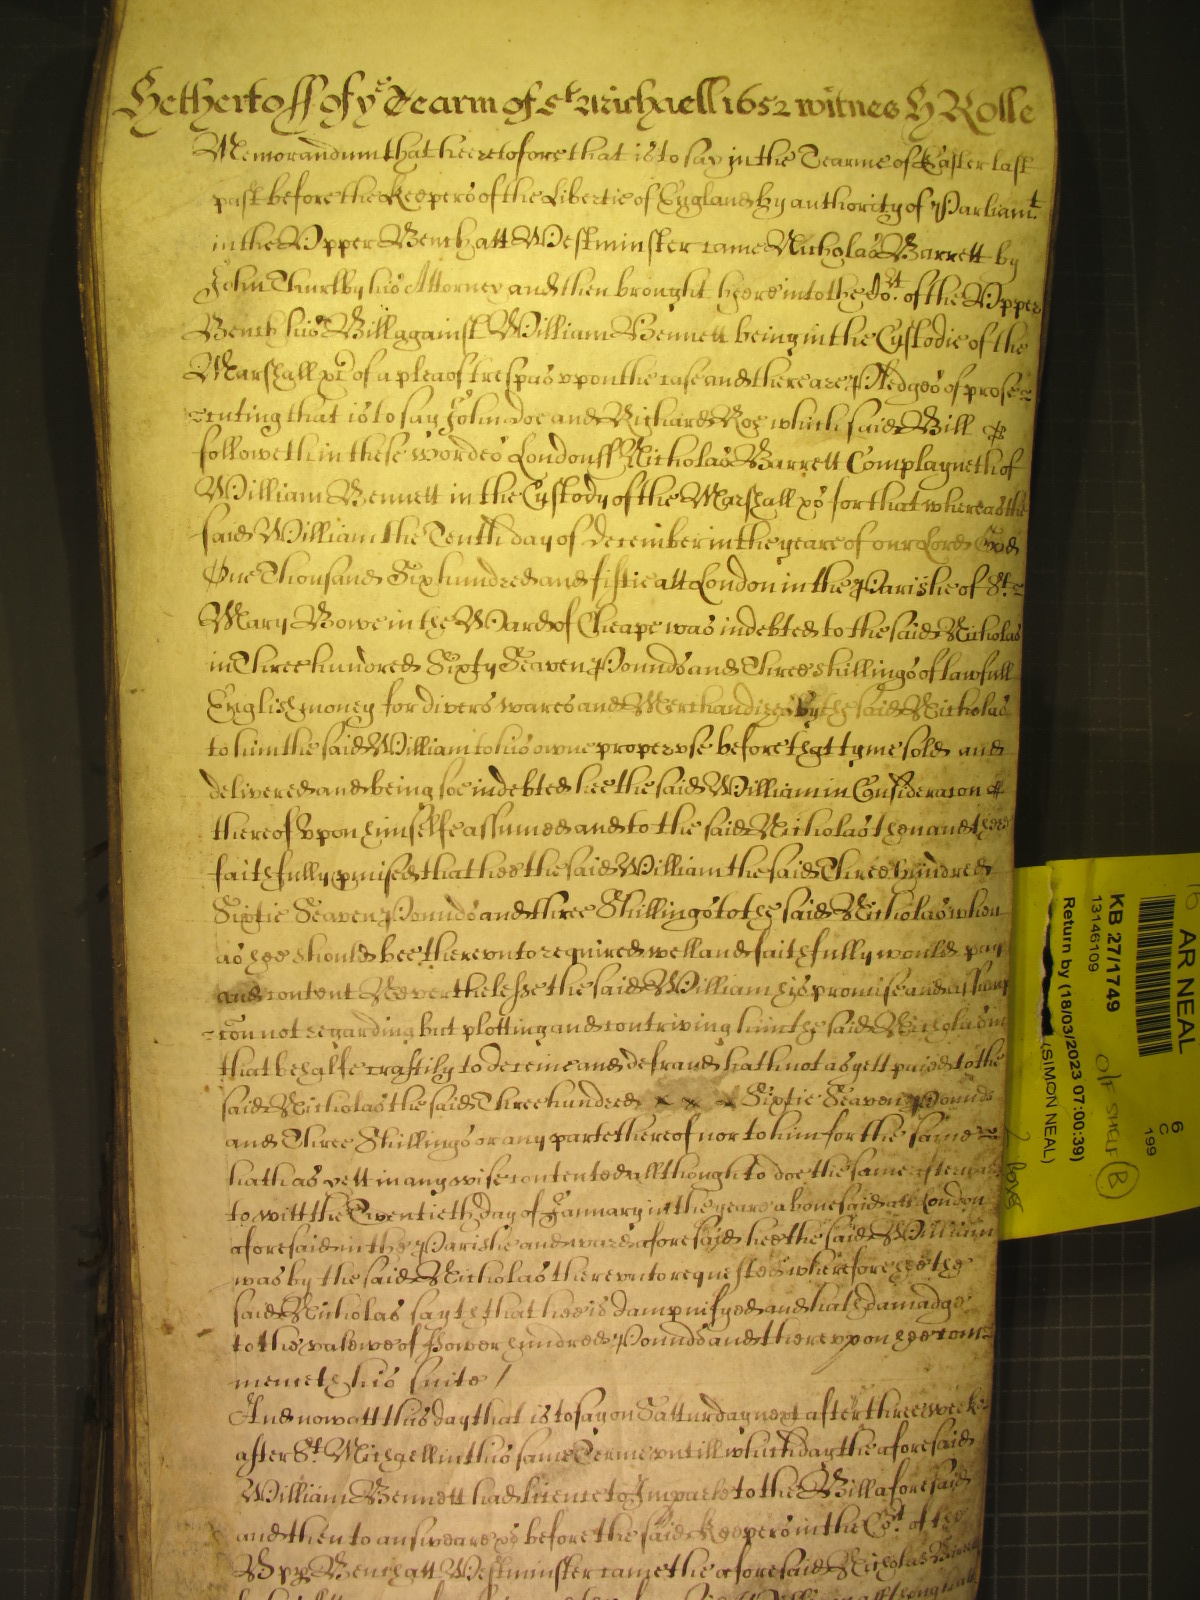 Hetherto ss of ye Tearm of St Michaell 1652 witnes H Rolle
Memorandum that heeretofore that is to say in the Tearme of Easter last
past before the Keepers of the Libertie of England by authority of Parliamt
in the Upper Bench att Westminster came Nicholas Barrett by
John Thurlby his Attorney and then brought heere into the Cort of the Upper
Bench his Bill against William Bennett being in the Custodie of the
Marshall &c of a plea of trespas upon the case and there are Pledges of prose=
=cuting that is to say John Doe and Richard Roe which said Bill
followeth in these wordes London ss Nicholas Barrett Complayneth of
William Bennett in the Custody of the Marshall &c for that whereas the
said William the Tenth day of December in the yeare of our Lord God
One Thousand Six hundred and fiftie att London in the Parishe of St
Mary Bowe in the Ward of Cheape was indebted to the said Nicholas
in Three hundred Sixty Seaven Pounds and Three shillings of lawfull
English money for divers wares and Merchandizes by the said Nicholas
to him the said William to his owne proper use before that tyme sold and
delivered and being soe indebted hee the said William in Consideracon
thereof Upon himselfe assumed and to the said Nicholas then and there
faithfully promised that hee the said William the said Three hundred
Sixtie Seaven Pounds and three Shillings to the said Nicholas when
as hee should bee thereunto required well and faithfully would pay
and content Neverthelesse the said William his promise and assump
=con not regarding but plotting and contriving him the said Nicholas in
that behalfe craftily to deceive and defraud hath not as yett paied to the
said Nicholas the said Three hundred x x x Sixtie Seaven Pounds
and Three Shillings or any parte thereof nor to him for the same
hath as yett in any wise contented allthough to doe the same afterwards
to witt the Twentieth day of January in the yeare abovesaid att London
aforesaid in the Parishe and ward aforesaid hee the said William
was by the said Nicholas thereunto requested wherefore hee the
said Nicholas sayth that hee is dampnifyed and hath damadge
to the valewe of Fower hundred Pounds and thereupon hee com=
menceth his suite /
And now att this day that is to say on Satturday next after three weekes
after St Michaell in this same Terme untill which day the aforesaid
William Bennett had licence to Imparle to the Bill aforesaid
and then to answeare &c before the said Keepers in the Cort of the
Upp Bench att Westminster came the aforesaid Nicholas Barrett
AR NEAL
KB 27/1749
13146109
Return by (18/03/2023 07:00:39)
(SIMON NEAL)
O/S SHELF
B
6
C
199